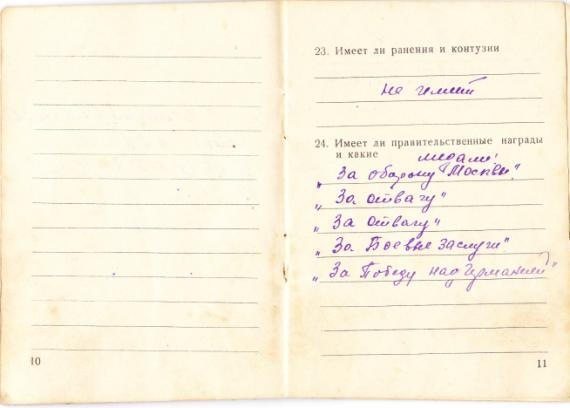 10
23. Имеет ли ранения и контузии
не имеет
24. Имеет ли правительственные награды
и какие медали:
„За оборону Москвы"
„За отвагу"
„За отвагу"
„За Боевые заслуги"
„За Победу над Германией"
11